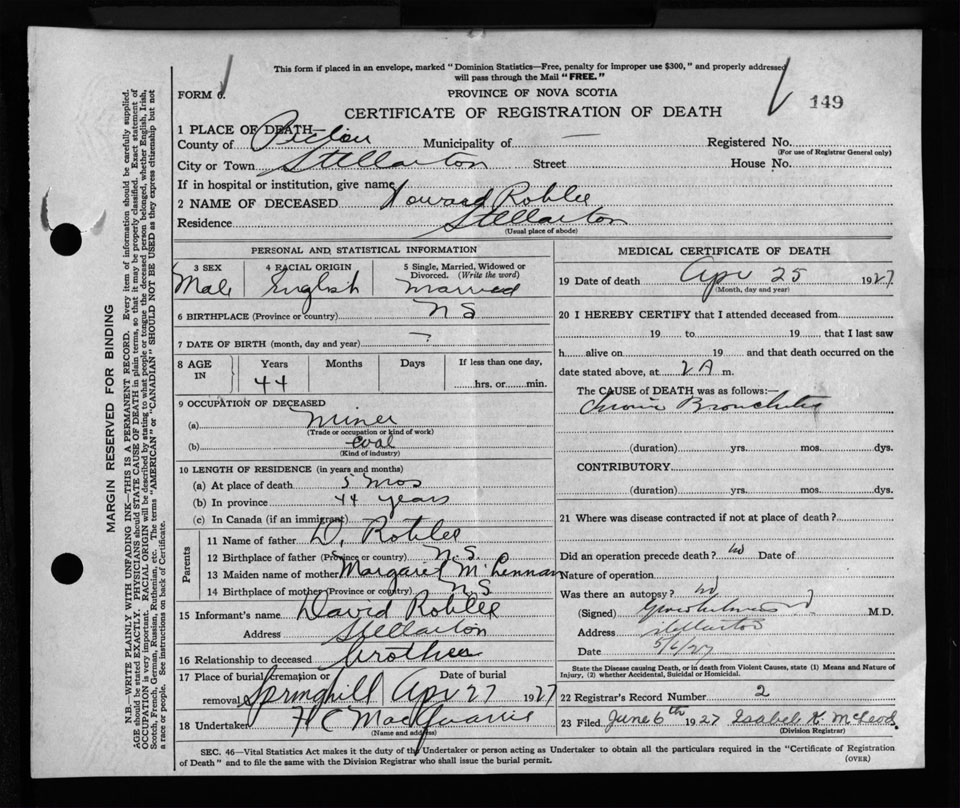 This form if placed in an envelope, marked "Dominion Statistics—Free, penalty for improper use $300," and properly addressed
will pass through the Mail "FREE."
FORM 6.
PROVINCE OF NOVA SCOTIA
149
CERTIFICATE OF REGISTRATION OF DEATH
1 PLACE OF DEATH—
County of Pictou Municipality of — Registered No.
(For use of Registrar General only)
City or Town Stellarton Street House No.
If in hospital or institution, give name
2 NAME OF DECEASED Howard Roblee
Residence Stellarton
(Usual place of abode)
PERSONAL AND STATISTICAL INFORMATION
3 SEX 4 RACIAL ORIGIN 5 Single, Married, Widowed or
Divorced. (Write the word)
Male English Married
6 BIRTHPLACE (Province or country) N S
7 DATE OF BIRTH (month, day and year) ?
8 AGE IN Years Months Days If less than one day,
44 hrs. or min.
9 OCCUPATION OF DECEASED
(a) Miner
(Trade or occupation or kind of work)
(b) coal
(Kind of industry)
10 LENGTH OF RESIDENCE (in years and months)
(a) At place of death 5 mos
(b) In province 44 years
(c) In Canada (if an immigrant)
Parents
11 Name of father D. Roblee
12 Birthplace of father (Province or country) N.S.
13 Maiden name of mother Margaret McLennan
14 Birthplace of mother (Province or country) N.S
15 Informant's name David Roblee
Address Stellarton
16 Relationship to deceased brother
17 Place of burial, cremation or Date of burial
removal Springhill Apr 27 1927
18 Undertaker H C MacQuarrie
(Name and address)
MEDICAL CERTIFICATE OF DEATH
19 Date of death Apr 25 1927
(Month, day and year)
20 I HEREBY CERTIFY that I attended deceased from
19 to 19 that I last saw
h alive on 19 and that death occurred on the
date stated above, at 2 A m.
The CAUSE of DEATH was as follows:—
Chronic Bronchitis
(duration) yrs. mos. dys.
CONTRIBUTORY
(duration) yrs. mos. dys.
21 Where was disease contracted if not at place of death?
Did an operation precede death? no Date of
Nature of operation
Was there an autopsy? no
(Signed) M.D.
Address Stellarton
Date 5/6/27
State the Disease causing Death, or in death from Violent Causes, state (1) Means and Nature of
Injury, (2) whether Accidental, Suicidal or Homicidal.
22 Registrar's Record Number 2
23 Filed June 6th 1927 Isabel K. McLeod
(Division Registrar)
SEC. 46—Vital Statistics Act makes it the duty of the Undertaker or person acting as Undertaker to obtain all the particulars required in the "Certificate of Registration
of Death" and to file the same with the Division Registrar who shall issue the burial permit.
(OVER)
MARGIN RESERVED FOR BINDING
N.B.—WRITE PLAINLY WITH UNFADING INK—THIS IS A PERMANENT RECORD. Every item of information should be carefully supplied.
AGE should be stated EXACTLY. PHYSICIANS should STATE CAUSE OF DEATH in plain terms, so that it may be properly classified. Exact statement of
OCCUPATION is very important. RACIAL ORIGIN will be described by stating to what people or tongue the deceased person belonged, whether English, Irish,
Scotch, French, German, Russian, Ruthenian, etc. The terms "AMERICAN" or "CANADIAN" SHOULD NOT BE USED as they express citizenship but not
a race or people. See instructions on back of Certificate.